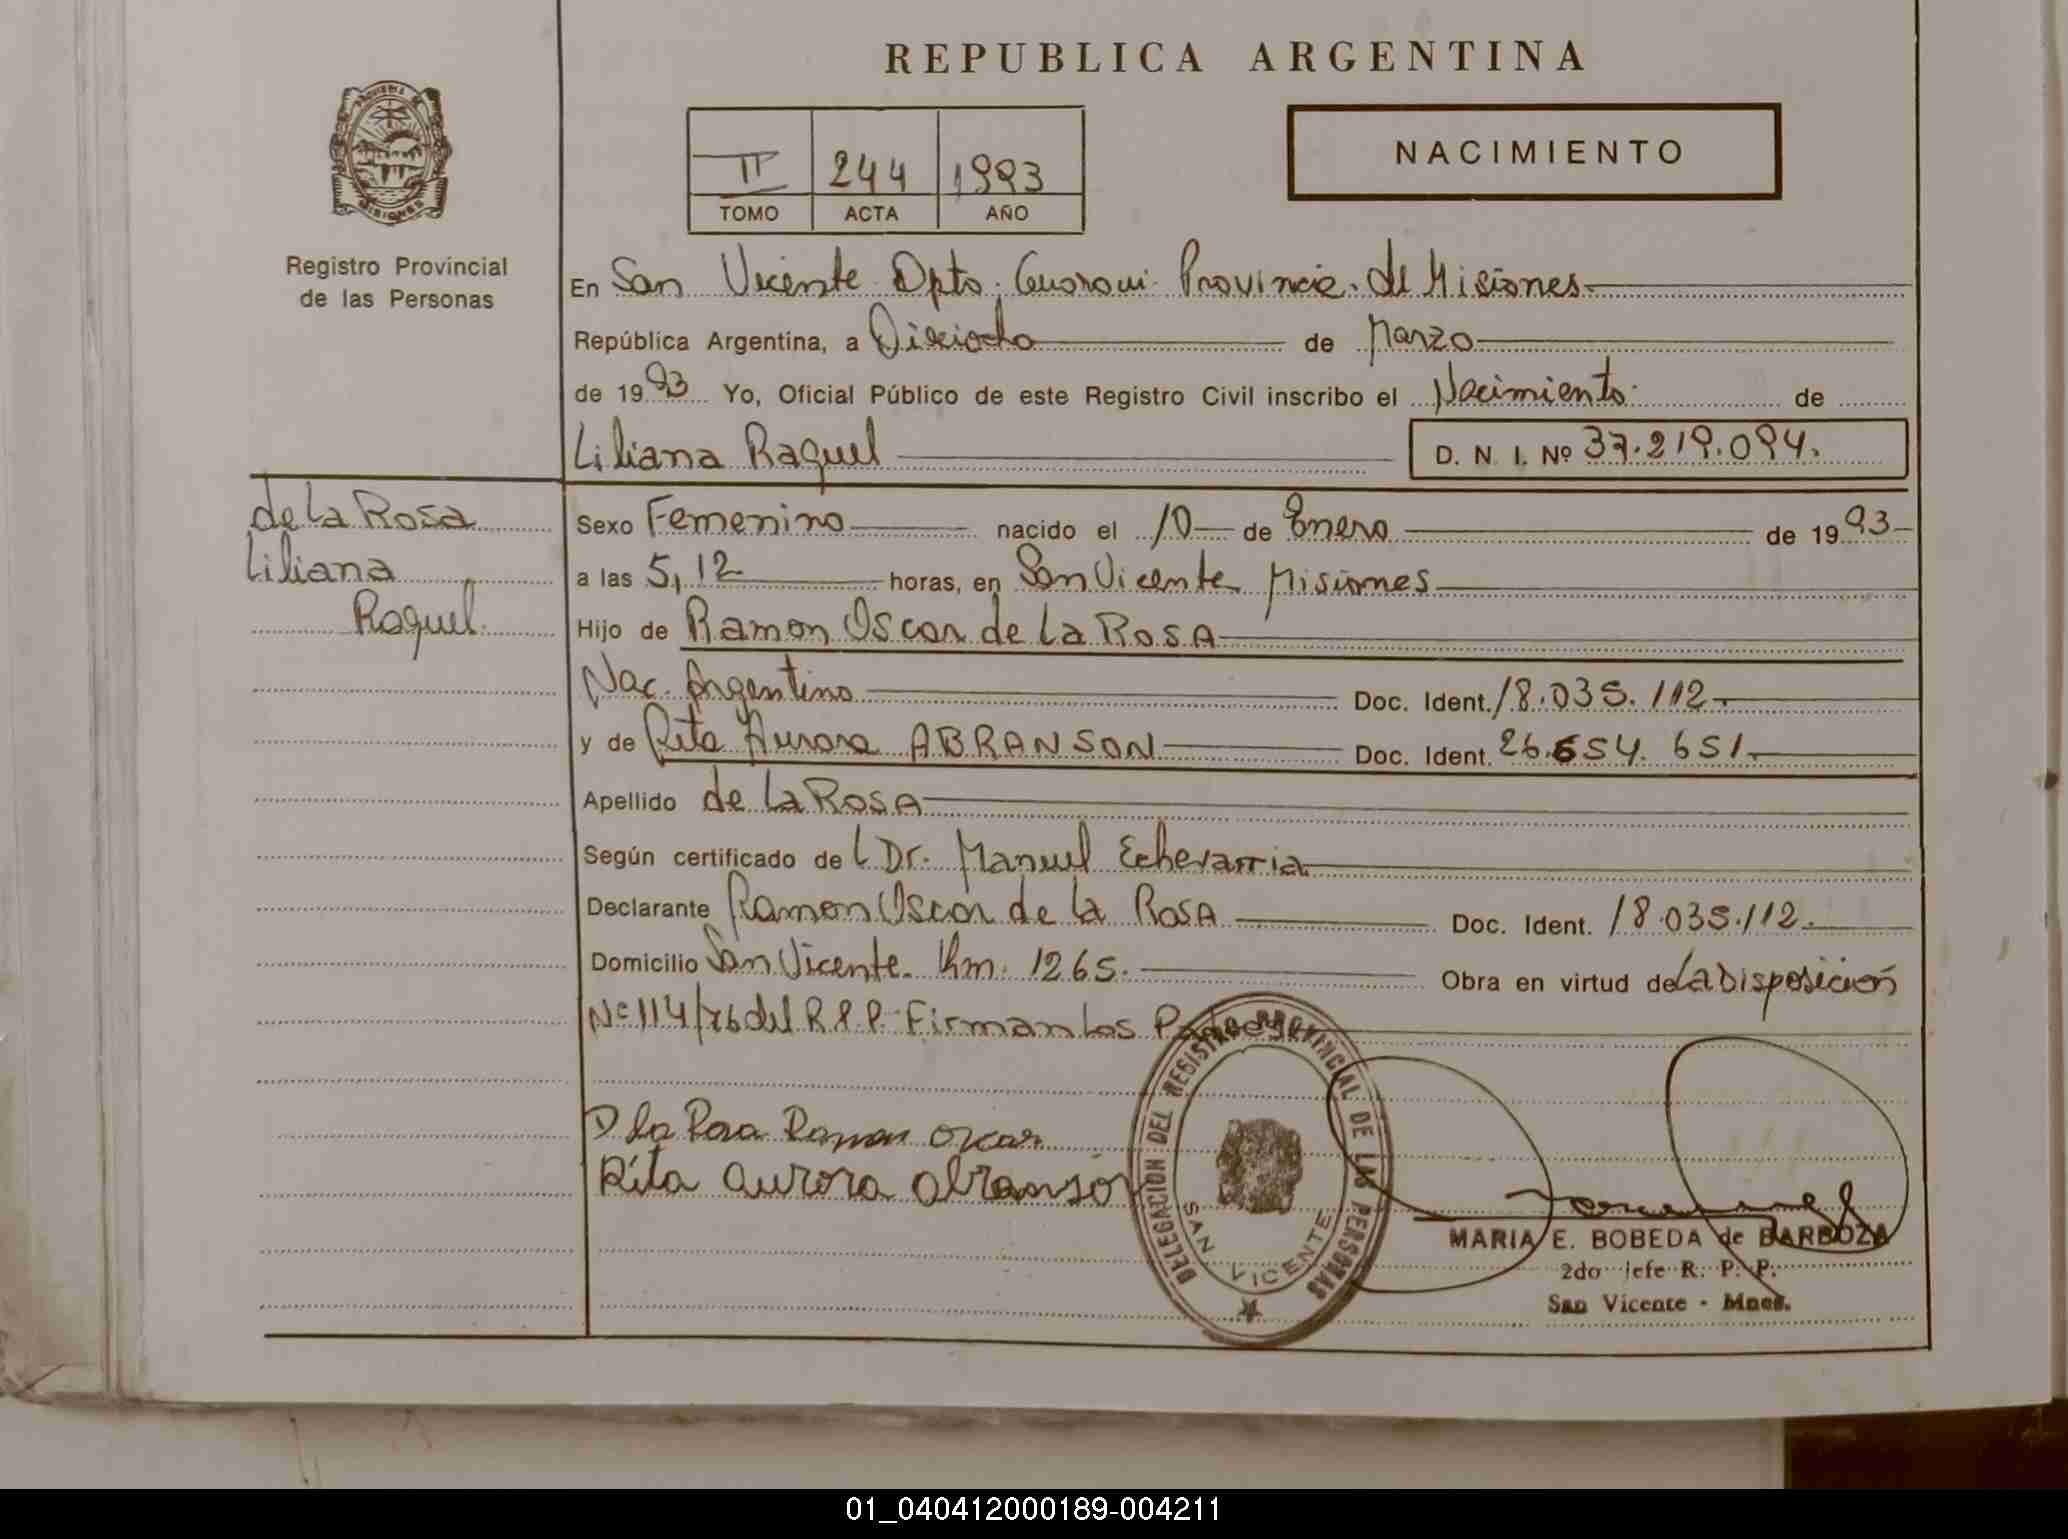 REPUBLICA ARGENTINA
PROVINCIA DE
MISIONES
Registro Provincial
de las Personas
II 244 1993
TOMO ACTA AÑO
NACIMIENTO
En San Vicente Dpto. Guarani Provincia de Misiones
República Argentina, a Dieciocho de Marzo
de 1993 Yo, Oficial Público de este Registro Civil inscribo el Nacimiento de
Liliana Raquel D. N. I. Nº 37.219.094.
de La Rosa
Liliana
Raquel
Sexo Femenino nacido el 10 de Enero de 1993
a las 5,12 horas, en San Vicente Misiones
Hijo de Ramon Oscar de La Rosa
Nac. Argentino Doc. Ident. 18.035.112
y de Rita Aurora ABRANSON Doc. Ident. 26.654.651
Apellido de La Rosa
Según certificado de L Dr. Manuel Echevarria
Declarante Ramon Oscar de La Rosa Doc. Ident. 18.035.112.
Domicilio San Vicente Km. 1265. Obra en virtud de La Disposición
Nº 114/76 del R.P.P. Firman Los Padres
D La Rosa Ramon Oscar
Rita Aurora Abransón
DELEGACION DEL REGISTRO PROVINCIAL DE LAS PERSONAS
SAN VICENTE
MARIA E. BOBEDA de BARBOZA
2do Jefe R. P. P.
San Vicente - Mnes.
01_040412000189-004211